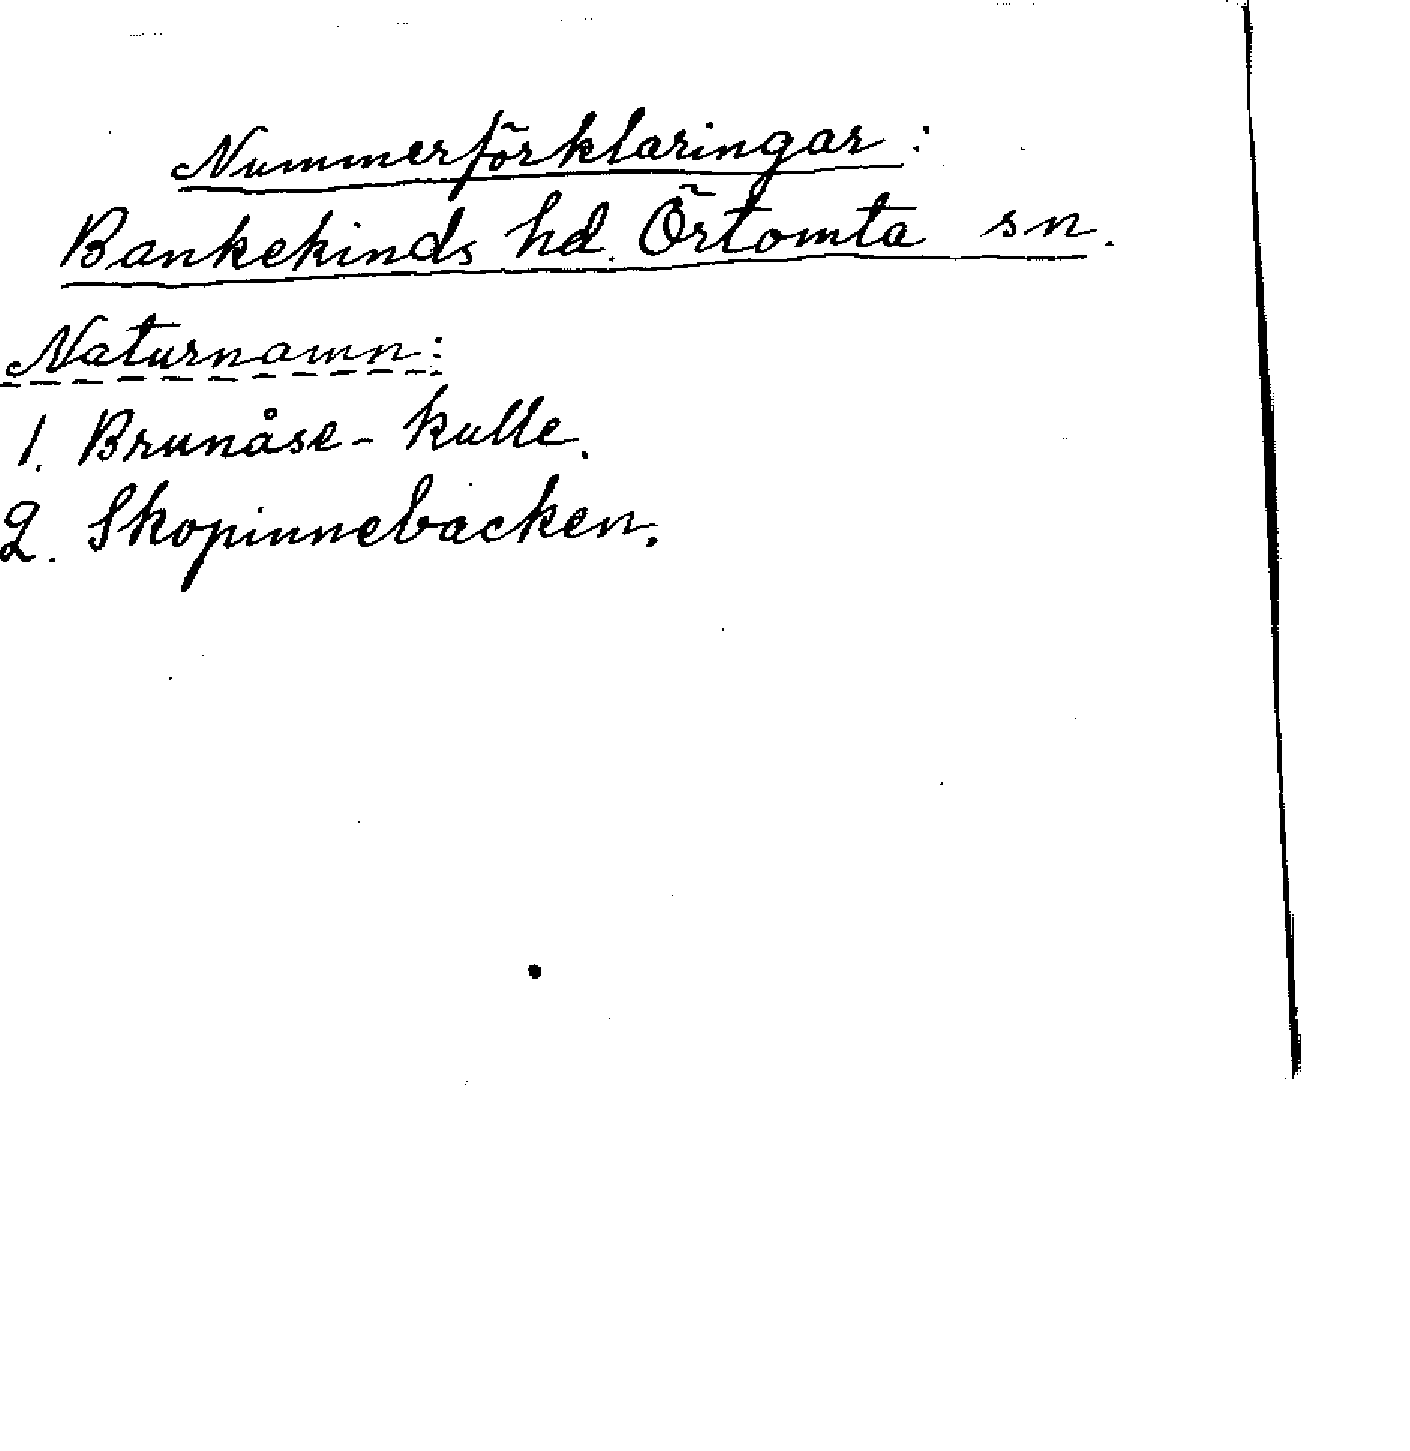 Nummerförklaringar:
Bankekinds hd. Örtomta sn.
Naturnamn:
1. Brunåse-kulle.
2. Skopinnebacken.